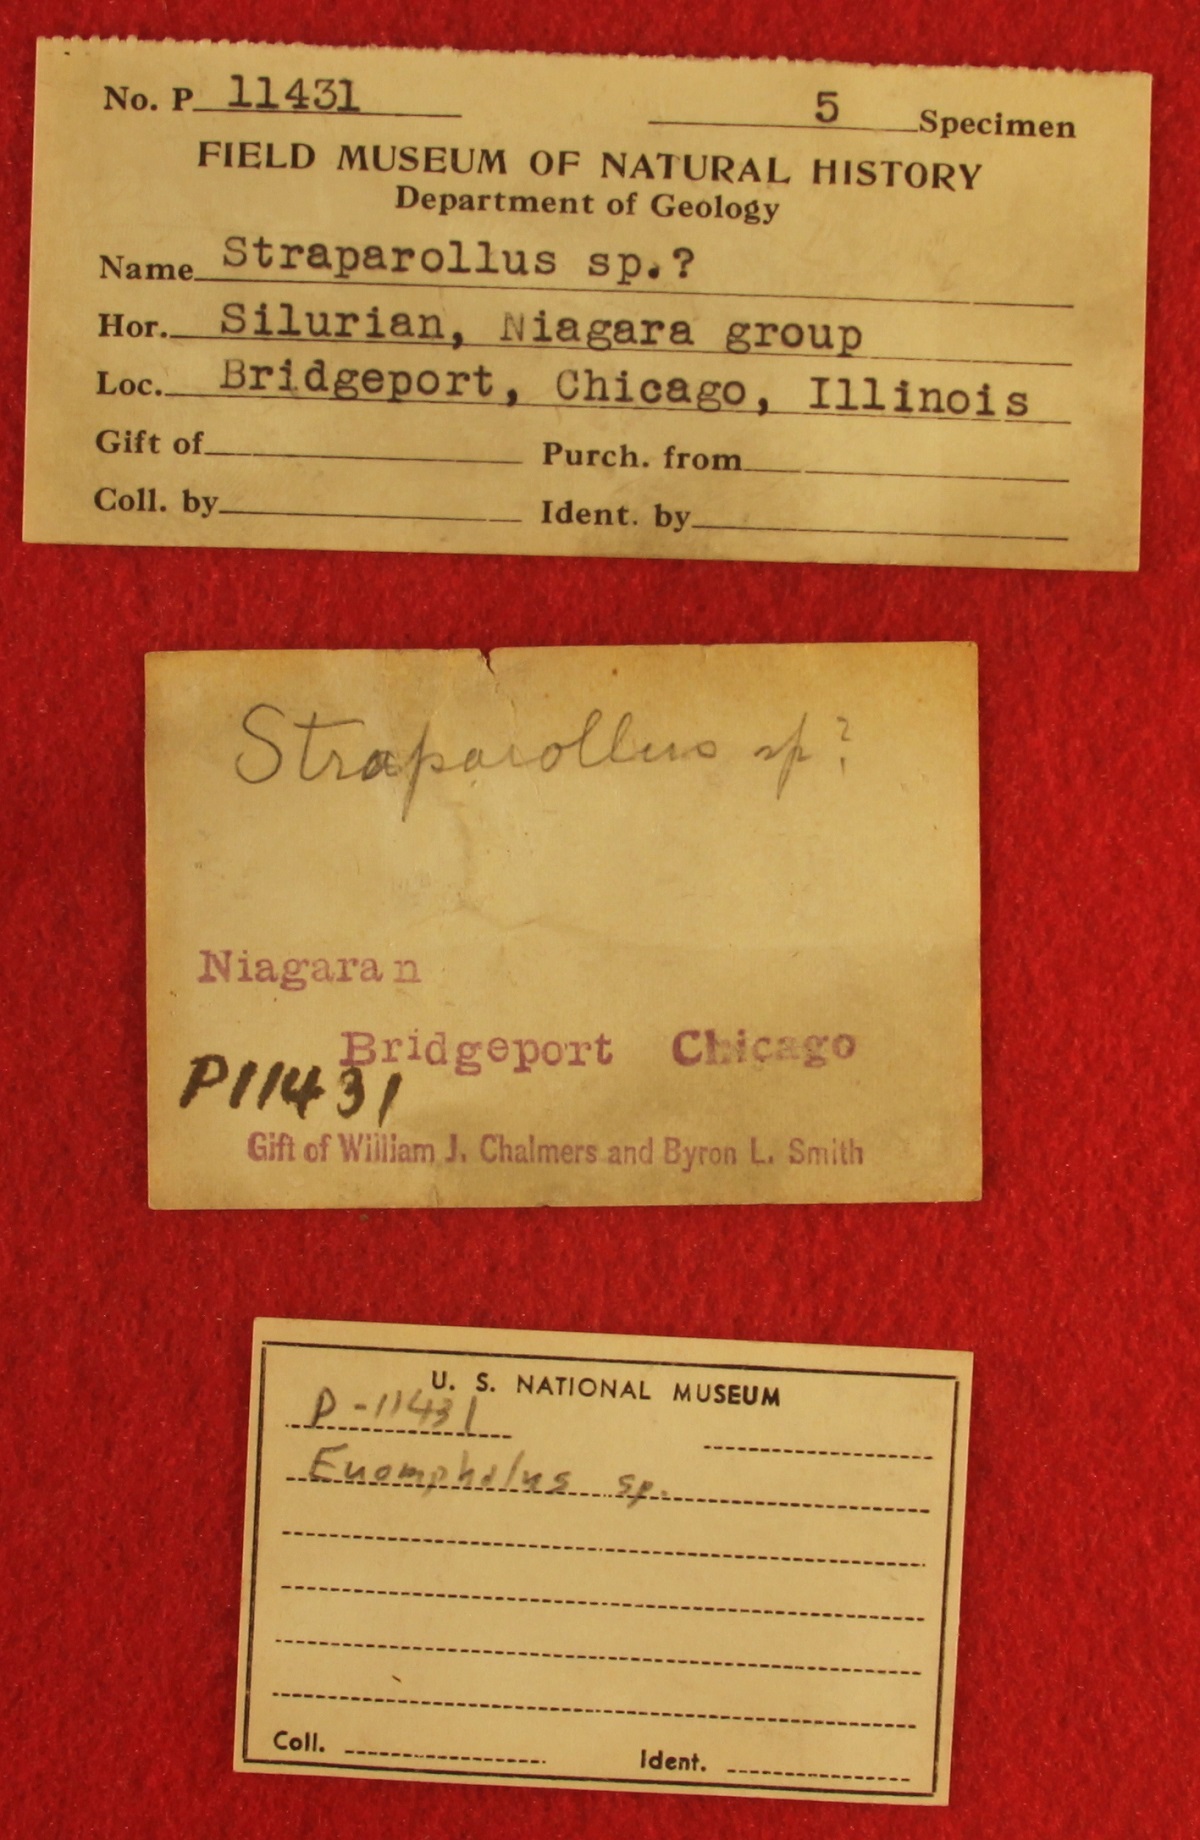 No. P 11431 5 Specimen
FIELD MUSEUM OF NATURAL HISTORY
Department of Geology
Name Straparollus sp.?
Hor. Silurian, Niagara group
Loc. Bridgeport, Chicago, Illinois
Gift of Purch. from
Coll. by Ident. by
Straparollus sp?
Niagaran
Bridgeport Chicago
P11431
Gift of William J. Chalmers and Byron L. Smith
U. S. NATIONAL MUSEUM
P-11431
Euomphalus sp.
Coll. Ident.